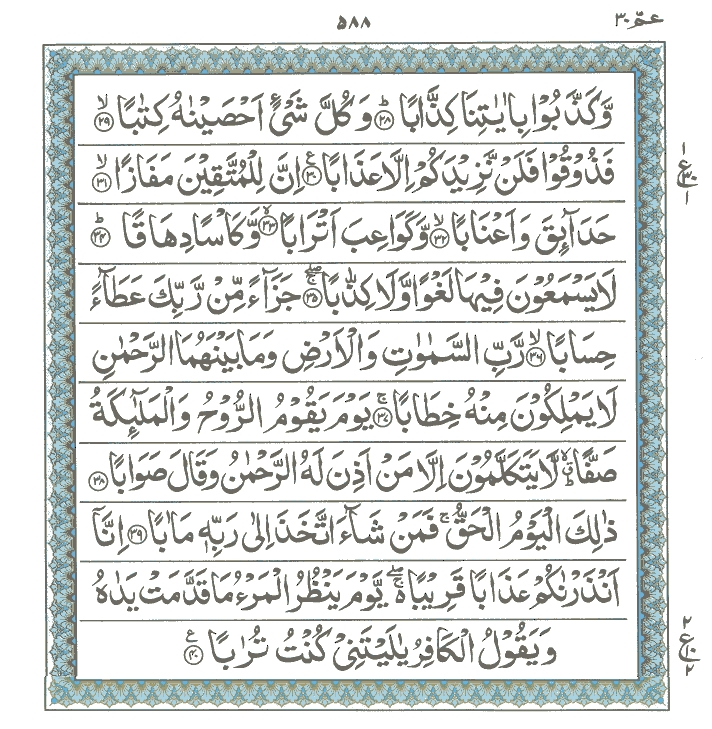 عمّ ٣٠
٥٨٨
وَّكَذَّبُوْا بِاٰيٰتِنَا كِذَّابًا ؕ﴿۲۸﴾ وَ كُلَّ شَیْءٍ اَحْصَيْنٰهُ كِتٰبًا ۙ﴿۲۹﴾
فَذُوْقُوْا فَلَنْ نَّزِيْدَكُمْ اِلَّا عَذَابًا ﴿۳۰﴾ ع اِنَّ لِلْمُتَّقِيْنَ مَفَازًا ۙ﴿۳۱﴾
حَدَآئِقَ وَ اَعْنَابًا ۙ﴿۳۲﴾ وَّكَوَاعِبَ اَتْرَابًا ۙ﴿۳۳﴾ وَّكَاْسًا دِهَاقًا ؕ﴿۳۴﴾
لَا يَسْمَعُوْنَ فِيْهَا لَغْوًا وَّلَا كِذّٰبًا ۚ﴿۳۵﴾ جَزَآءً مِّنْ رَّبِّكَ عَطَآءً
حِسَابًا ۙ﴿۳۶﴾ رَّبِّ السَّمٰوٰتِ وَالْاَرْضِ وَمَا بَيْنَهُمَا الرَّحْمٰنِ
لَا يَمْلِكُوْنَ مِنْهُ خِطَابًا ۚ﴿۳۷﴾ يَوْمَ يَقُوْمُ الرُّوْحُ وَالْمَلٰٓئِكَةُ
صَفًّا ؕۙ لَّا يَتَكَلَّمُوْنَ اِلَّا مَنْ اَذِنَ لَهُ الرَّحْمٰنُ وَقَالَ صَوَابًا ﴿۳۸﴾
ذٰلِكَ الْيَوْمُ الْحَقُّ ۚ فَمَنْ شَآءَ اتَّخَذَ اِلٰى رَبِّهٖ مَاٰبًا ﴿۳۹﴾ اِنَّاۤ
اَنْذَرْنٰكُمْ عَذَابًا قَرِيْبًا ۖۚ۬ يَّوْمَ يَنْظُرُ الْمَرْءُ مَا قَدَّمَتْ يَدٰهُ
وَيَقُوْلُ الْكَافِرُ يٰلَيْتَنِىْ كُنْتُ تُرٰبًا ﴿۴۰﴾ ع
١
ع ٣٠
١
٢
ع ١٠
٢